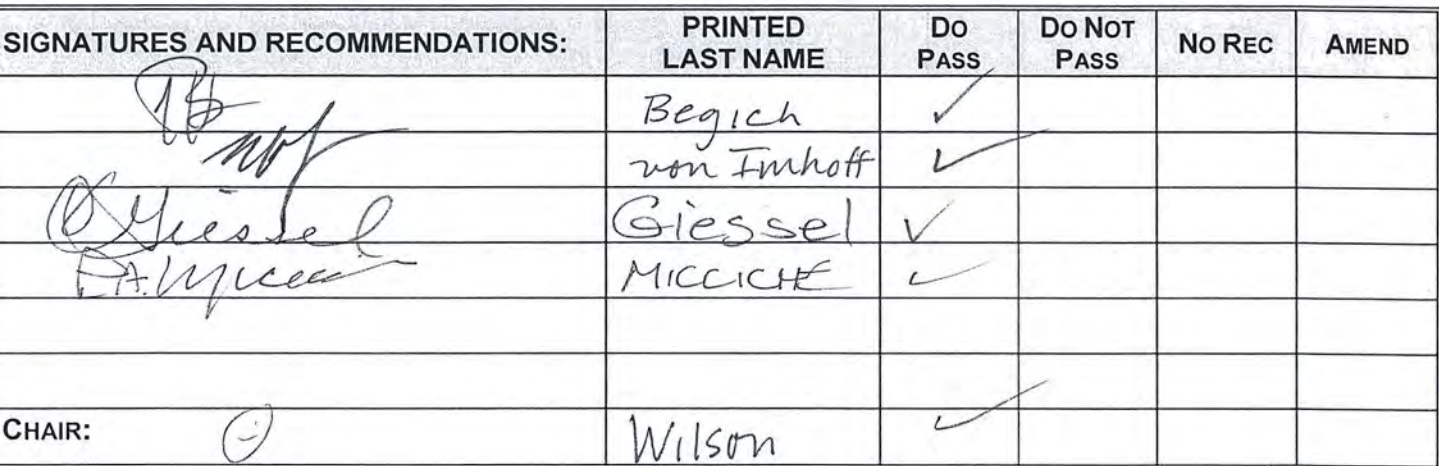 SIGNATURES AND RECOMMENDATIONS: PRINTED LAST NAME DO PASS DO NOT PASS NO REC AMEND
Begich ✓
von Imhoff ✓
Giessel Giessel ✓
MICCICHE ✓
CHAIR: Wilson ✓